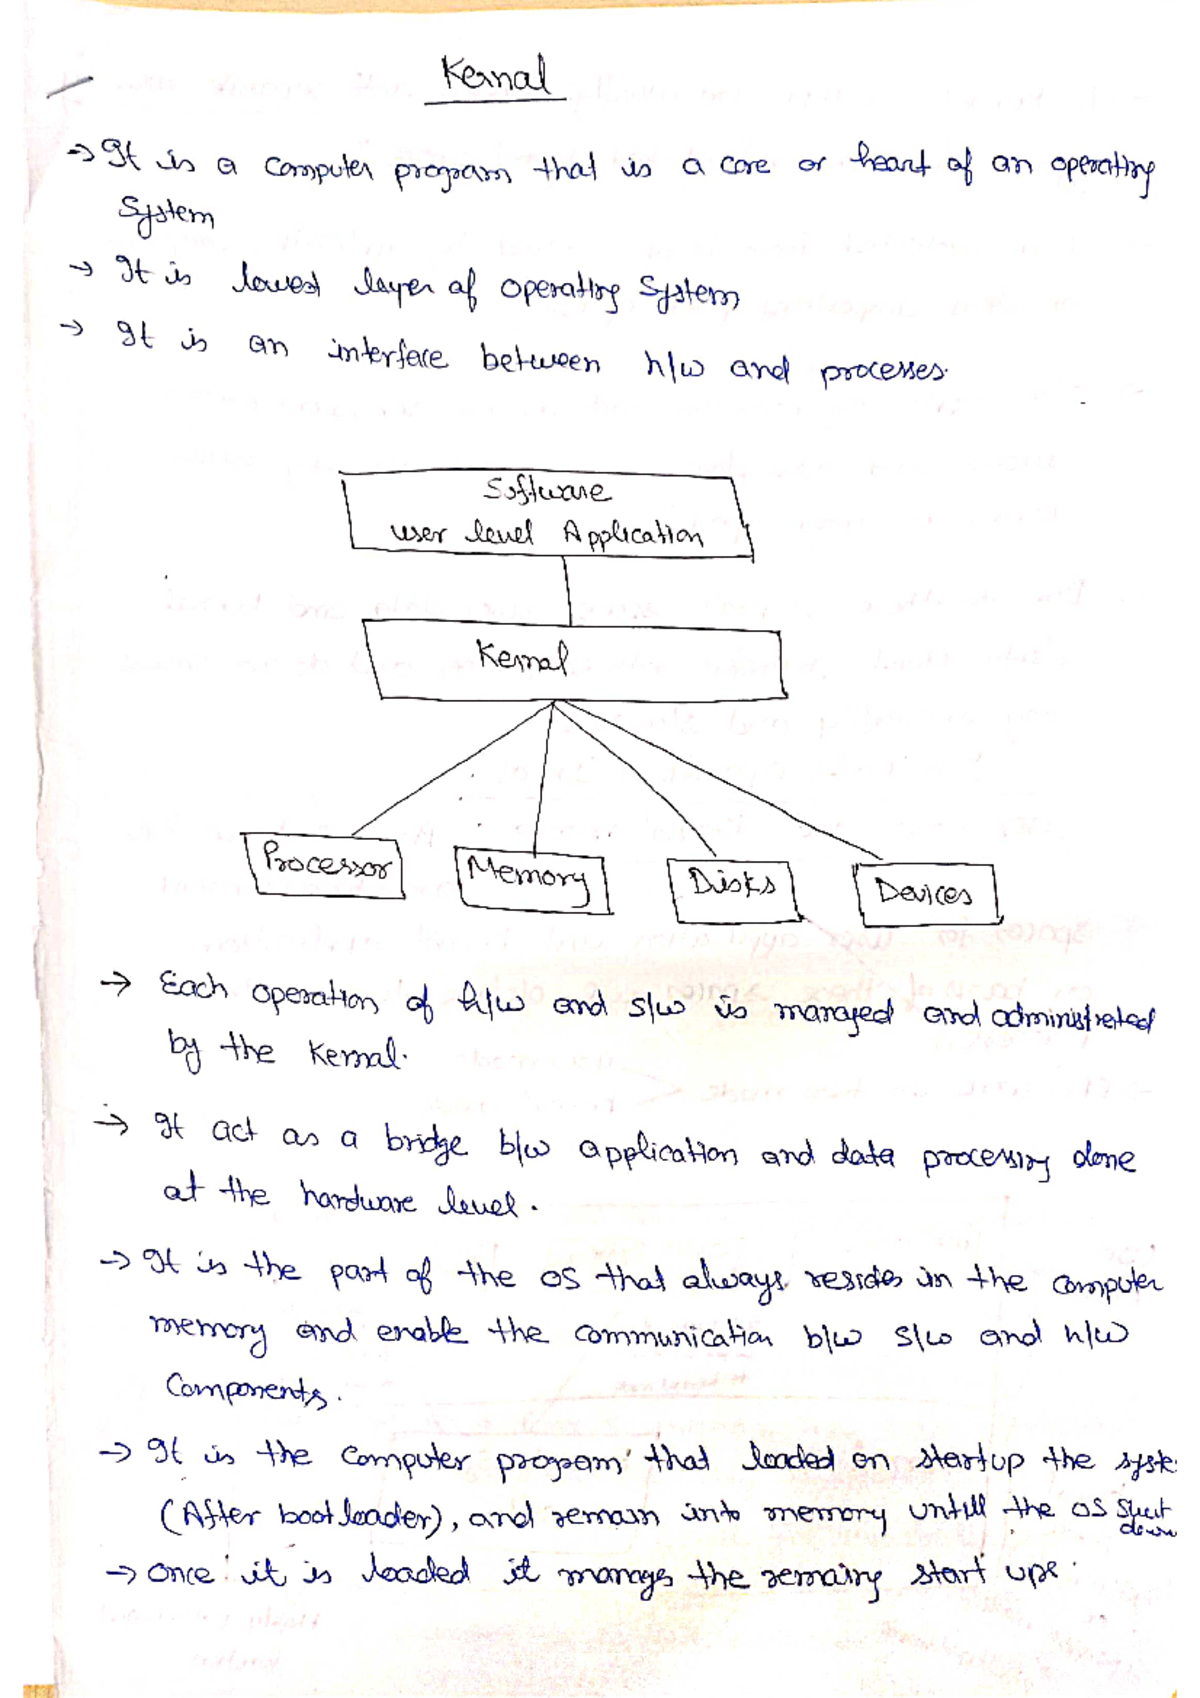 Kernal
→ It is a computer program that is a core or heart of an operating
System
→ It is lowest layer of operating System
→ It is an interface between h/w and processes.
Software
user level Application
Kernal
Processor
Memory
Disks
Devices
→ Each operation of h/w and s/w is managed and administrated
by the Kernal.
→ It act as a bridge b/w application and data processing done
at the hardware level.
→ It is the part of the OS that always resides in the computer
memory and enable the communication b/w s/w and h/w
Components.
→ It is the computer program that loaded on startup the syste
(After bootloader), and remain into memory untill the OS Shut
down
→ Once it is loaded it manages the remaing start ups.